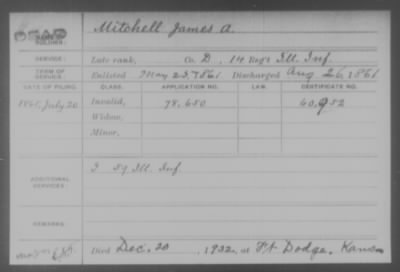 DEAD
Mitchell James A.
SOLDIER:
SERVICE: Late rank, Co. D, 14 Reg't Ill. Inf.
TERM OF SERVICE: Enlisted May 23, 1861 Discharged Aug 26, 1861
DATE OF FILING. CLASS. APPLICATION NO. LAW. CERTIFICATE NO.
1865, July 20 Invalid, 78,650 60,952
Widow,
Minor,
ADDITIONAL SERVICES: I 59 Ill. Inf.
REMARKS:
Died Dec. 20, 1932, at Ft Dodge, Kans